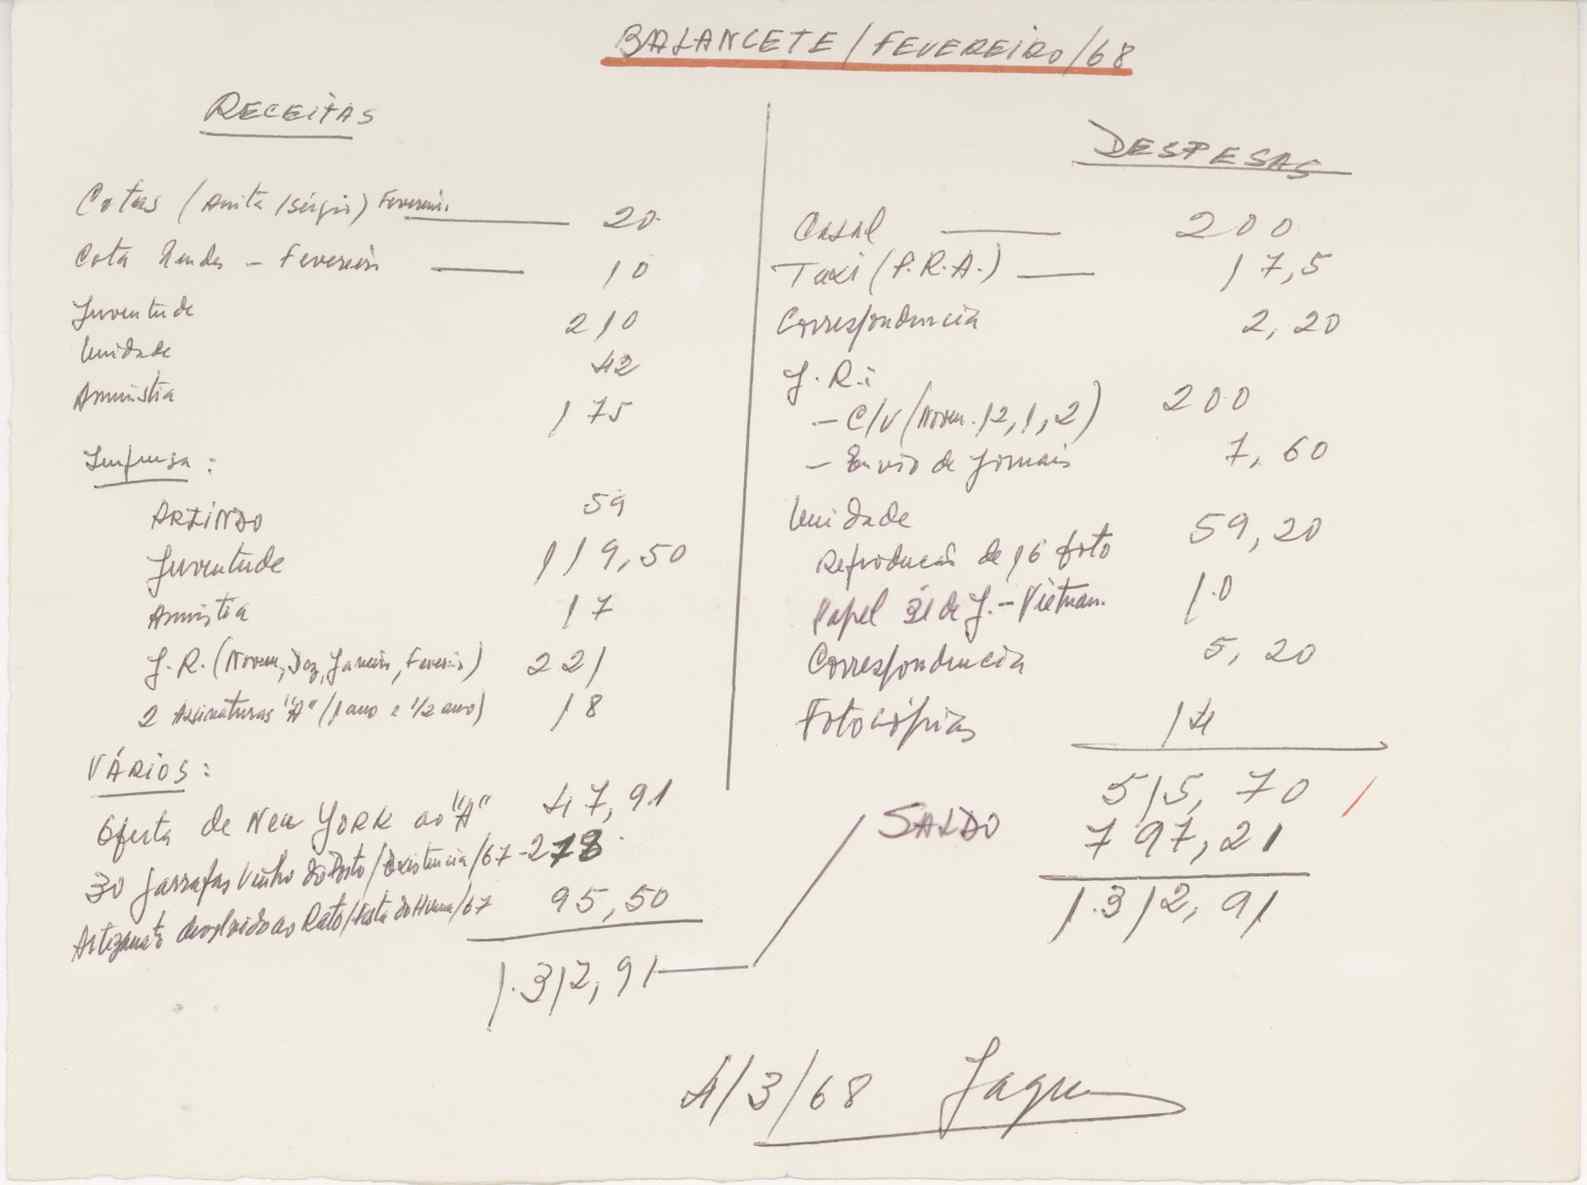 BALANCETE/FEVEREIRO/68
RECEITAS
Cotas (Anita/Sérgio) Fevereiro 20
Cota Mendes - Fevereiro 10
Juventude 210
Unidade 42
Amnistia 175
Imprensa:
ARLINDO 59
Juventude 119,50
Amnistia 17
J.R. (Novem, Dez, Janeiro, Fevereiro) 221
2 Assinaturas "A" (1 ano e 1/2 ano) 18
VÁRIOS:
Oferta de New YORK ao "A" 47,91
30 garrafas vinho do Porto/Existencia/67 - 278
Artezanato devolvido ao Rato/Festa do Huma/67 95,50
1.312,91
DESPESAS
Casal 200
Taxi (P.R.A.) 17,5
Correspondencia 2,20
J.R:
- C/V (Novem. 12, 1, 2) 200
- Envio de Jornais 7,60
Unidade
Reproducão de 16 foto 59,20
Papel de J. - Vietnam. 10
Correspondencia 5,20
Fotocópias 14
515,70
SALDO 797,21
1.312,91
4/3/68